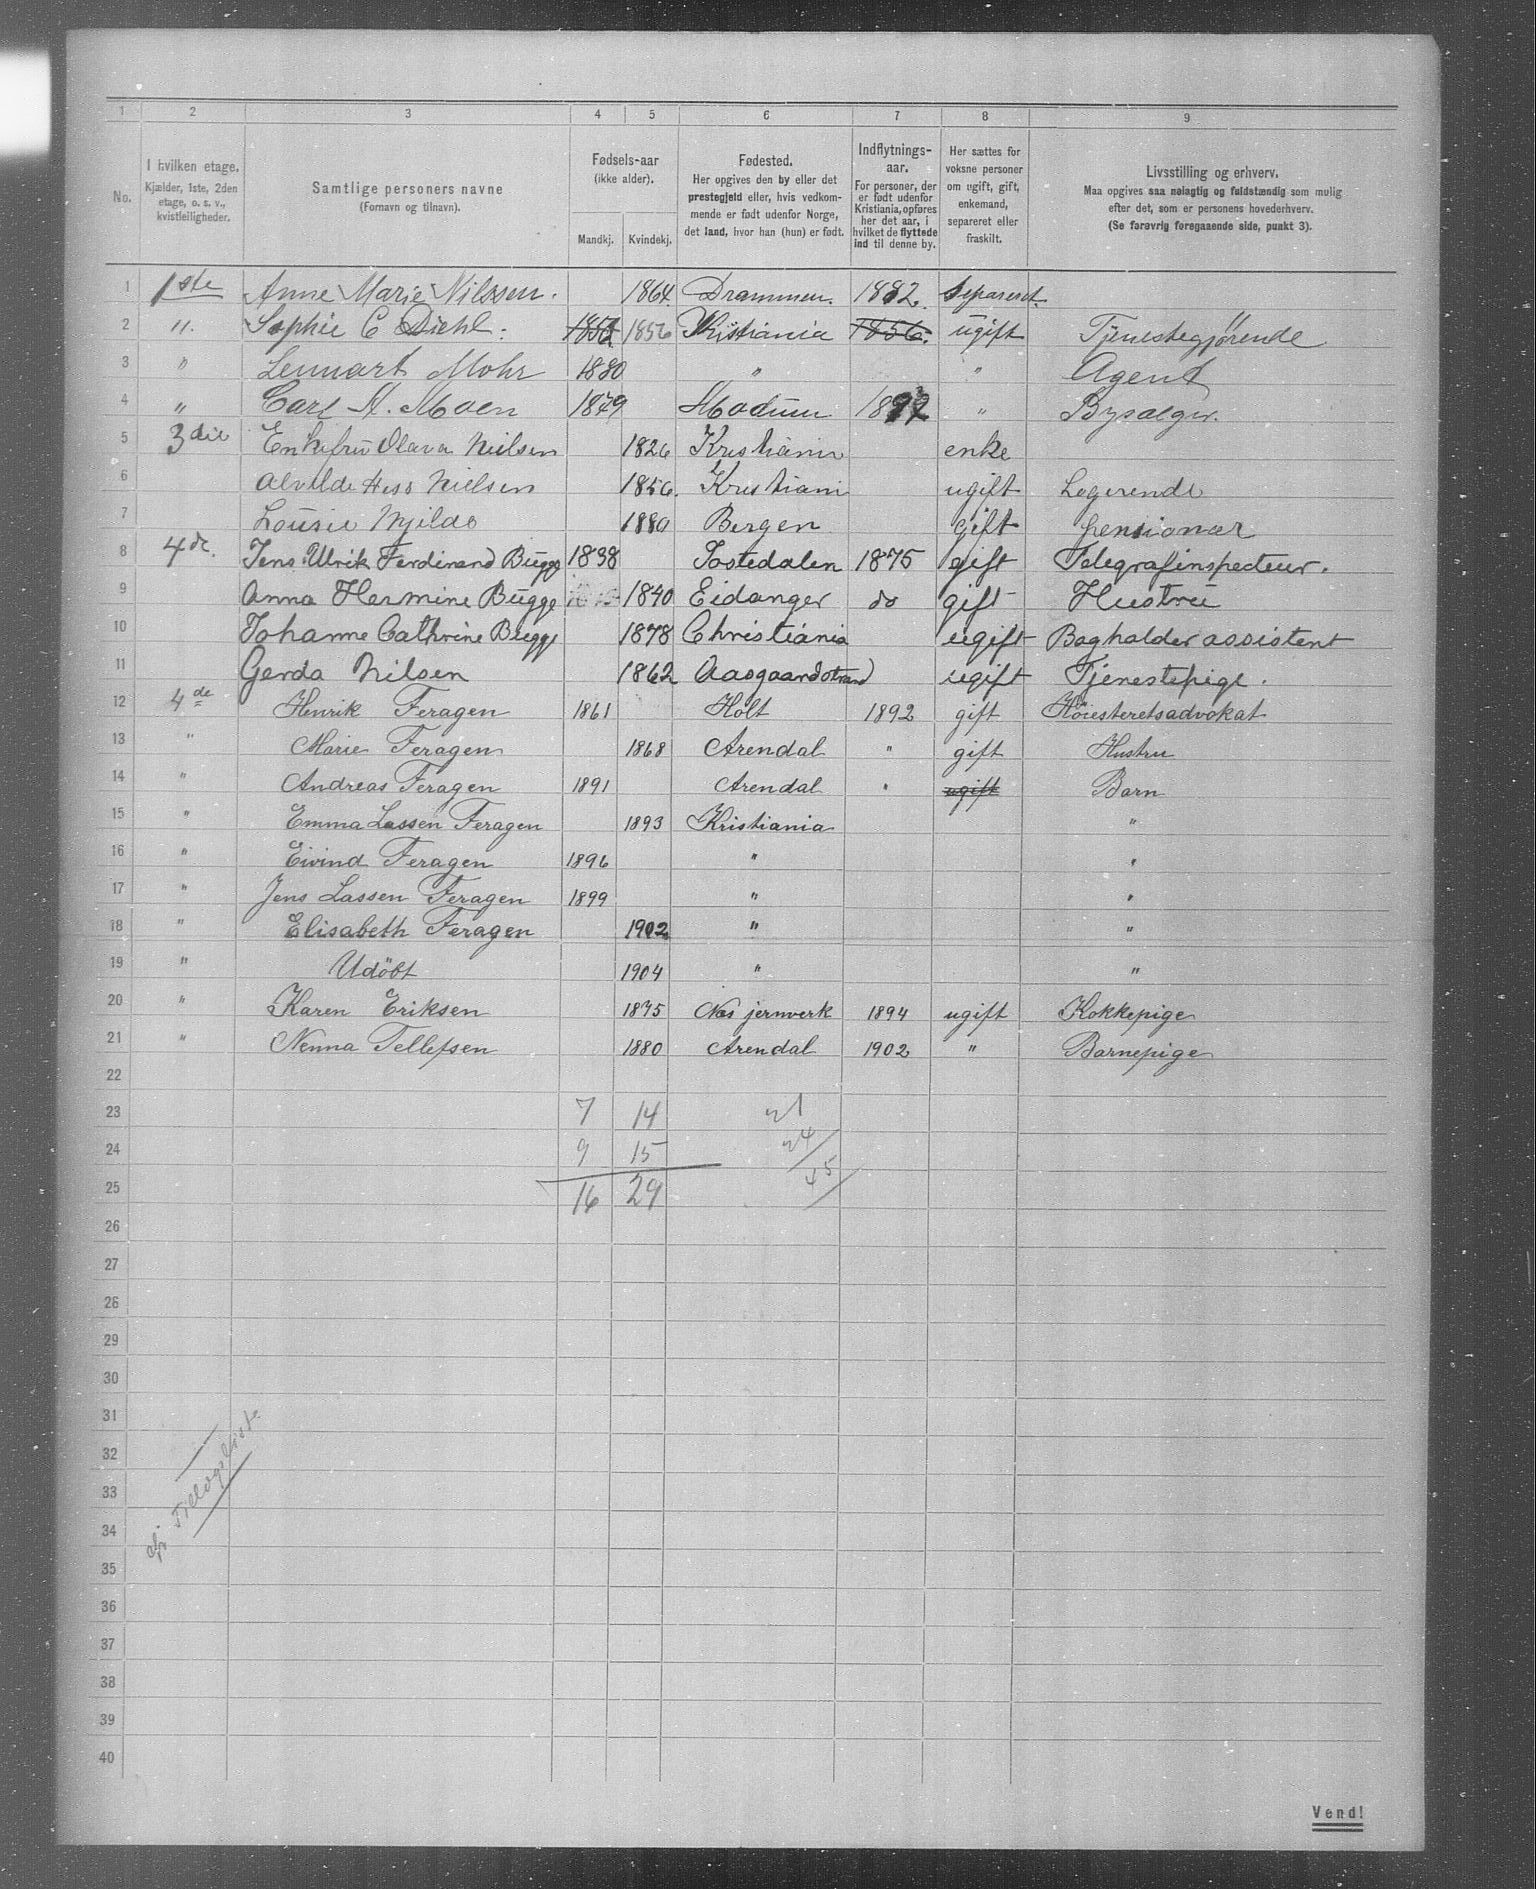 1 2 3 4 5 6 7 8 9
No. I hvilken etage. Kjælder, 1ste, 2den etage, o. s. v., kvistleiligheder. Samtlige personers navne (Fornavn og tilnavn). Fødsels-aar (ikke alder). Mandkj. Kvindekj. Fødested. Her opgives den by eller det prestegjeld eller, hvis vedkommende er født udenfor Norge, det land, hvor han (hun) er født. Indflytnings-aar. For personer, der er født udenfor Kristiania, opføres her det aar, i hvilket de flyttede ind til denne by. Her sættes for voksne personer om ugift, gift, enkemand, separeret eller fraskilt. Livsstilling og erhverv. Maa opgives saa nøiagtig og fuldstændig som mulig efter det, som er personens hovederhverv. (Se forøvrig foregaaende side, punkt 3).
1 1ste Anne Marie Nilssen. 1864. Drammen. 1882. separeret.
2 " Sophie C Diehl. 1856 1856 Kristiania 1856. ugift Tjenestegjørende
3 " Lennart Mohr 1880 " " Agent
4 " Carl A. Moen 1879 Modum 1892 " Bysælger.
5 3die Enkefru Olava Nielsen 1826 Kristiania enke
6 Alvilde Hess Nielsen 1856. Kristiania ugift Logerende
7 1880 Bergen gift pensionær
8 4de. Jens Ulrik Ferdinand Bugge 1838 Jostedalen 1875 gift Telegrafinspecteur.
9 Anna Hermine Bugge 1840 Eidanger do gift Hustru
10 Johanne Cathrine Bugge 1878 Christiania ugift Bogholderassistent
11 Gerda Nilsen 1862 Aasgaardstrand ugift Tjenestepige.
12 4de Henrik Feragen 1861 Holt 1892 gift Høiesteretsadvokat
13 " Marie Feragen 1868 Arendal " gift Hustru
14 " Andreas Feragen 1891 Arendal " ugift Barn
15 " Emma Lassen Feragen 1893 Kristiania "
16 " Eivind Feragen 1896 " "
17 " Jens Lassen Feragen 1899 " "
18 " Elisabeth Feragen 1902 " "
19 " Udöbt 1904 " "
20 " Karen Eriksen 1875 Nes jernverk 1894 ugift Kokkepige
21 " Nenna Tellefsen 1880 Arendal 1902 " Barnepige
22
23 7 14 21
24 9 15 24
25 16 29 45
26
27
28
29
30
31
32
33
34
35
36
37
38
39
40
Vend!